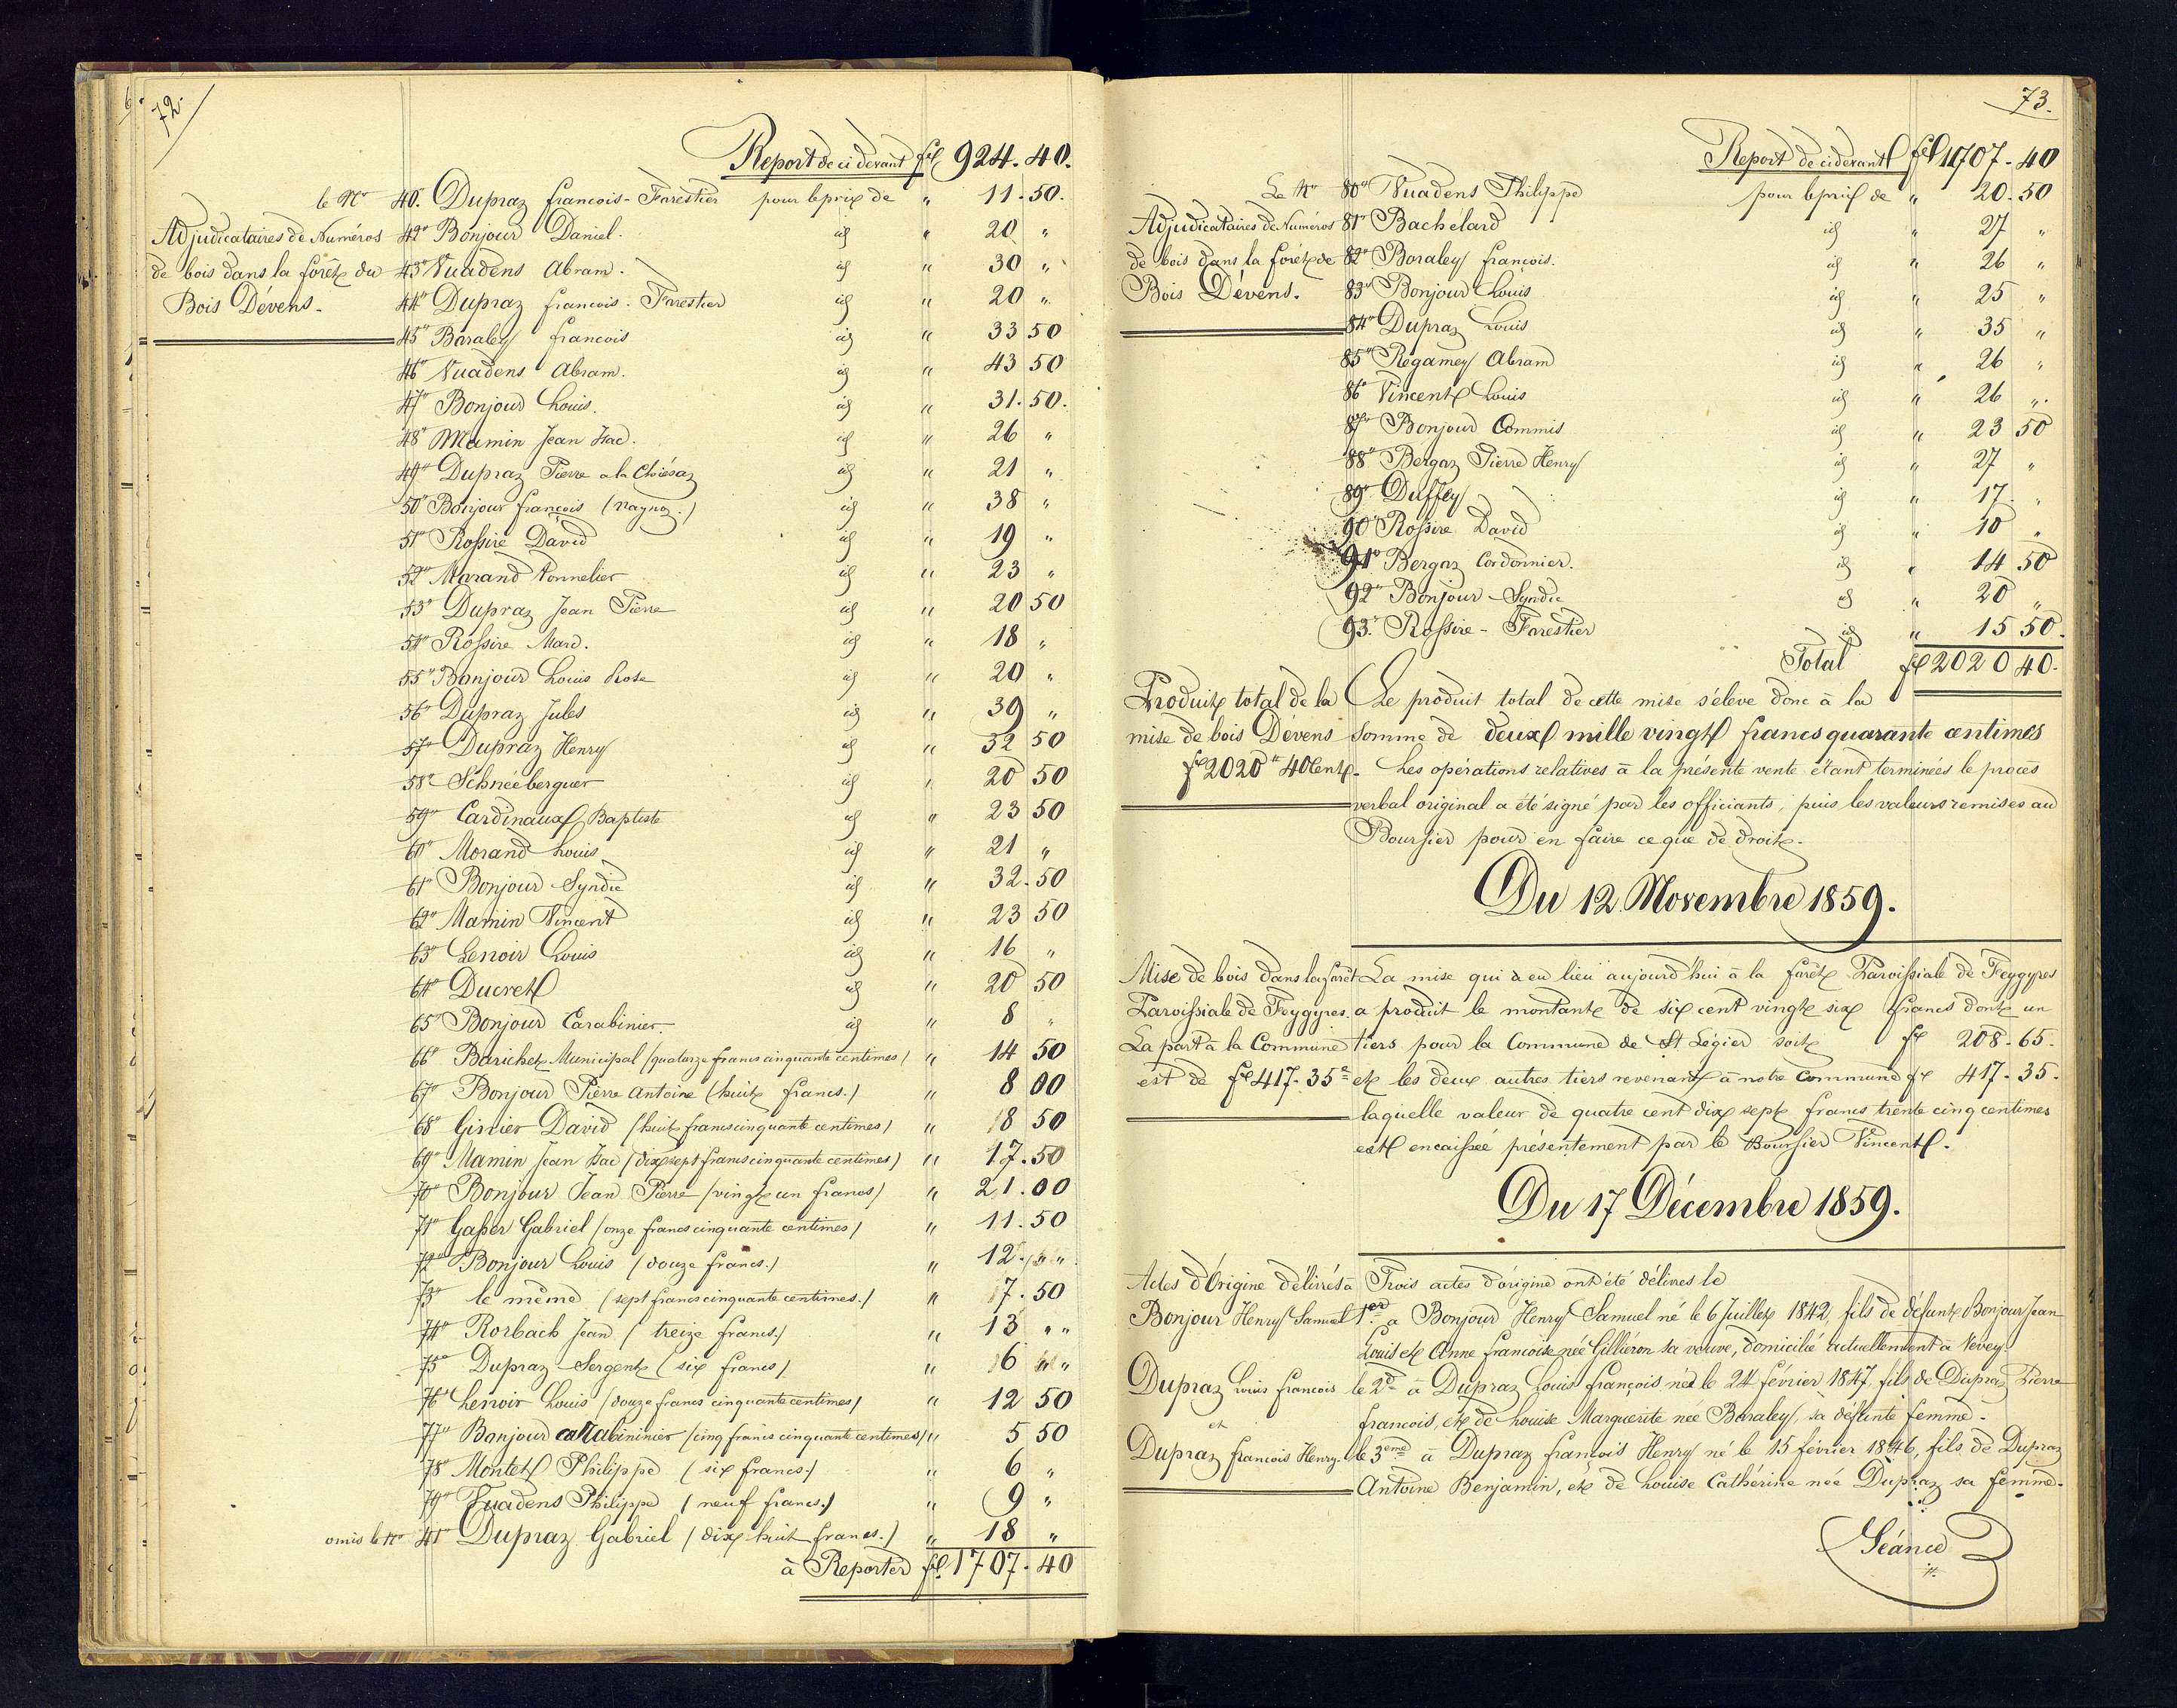 72.
Report de ci devant fcs 924. 40.
le No 40. Dupraz francois - Forestier pour le prix de " 11. 50.
Adjudicataires de Numéros
de bois dans la forêt du
Bois Dévens.
42" Bonjour Daniel. id " 20 "
43" Vuadens Abram. id " 30 "
44" Dupraz francois. Forestier id " 20 "
45" Boraley francois id " 33 50
46" Vuadens Abram. id " 43 50
47" Bonjour Louis. id " 31. 50.
48" Mamin Jean Isac. id " 26 "
49" Dupraz Pierre a la Chiésaz id " 21 "
50" Bonjour françois (Nagnoz.) id " 38 "
51" Rossire David id " 19 "
52" Marand Tonnelier id " 23 "
53" Dupraz Jean Pierre id " 20 50
54" Rossire Marc. id " 18 "
55" Bonjour Louis Rose id " 20 "
56" Dupraz Jules id " 39 "
57" Dupraz Henry id " 32 50
58" Schnéeberguer id " 20 50
59" Cardinaux Baptiste id " 23 50
60" Morand Louis id " 21 "
61" Bonjour Syndic id " 32. 50
62" Mamin Vincent id " 23 50
63" Lenoir Louis id " 16 "
64" Ducret id " 20 50
65" Bonjour Carabinier. id " 8 "
66" Barichet Municipal (quatorze francs cinquante centimes) " 14 50
67" Bonjour Pierre Antoine (huit francs.) " 8 00
68" Ginier David (huit francs cinquante centimes) " 8 50
69" Mamin Jean Isac (dix sept francs cinquante centimes) " 17. 50
70" Bonjour Jean Pierre (vingt un francs) " 21. 00
71" Gasser Gabriel (onze francs cinquante centimes) " 11. 50
72" Bonjour Louis (douze francs.) " 12. "
73" le même (sept francs cinquante centimes.) " 7. 50
74" Rorbach Jean (treize francs.) " 13 "
75" Dupraz Sergent (six francs) " 6 "
76" Lenoir Louis (douze francs cinquante centimes) " 12 50
77" Bonjour carabininier (cinq francs cinquante centimes) " 5 50
78" Montet Philippe (six francs.) " 6 "
79" Vuadens Philippe (neuf francs.) " 9 "
omis le No 41" Dupraz Gabriel (dix huit francs.) " 18 "
à Reporter fcs 1707. 40
73.
Report de ci devant fcs 1707. 40
Le No 80" Vuadens Philippe pour le prix de " 20. 50
Adjudicataires de Numéros
de bois dans la forêt de
Bois Dévens.
81" Bachélard id " 27 "
82" Boraley françois. id " 26 "
83" Bonjour Louis id " 25 "
84" Dupraz Louis id " 35 "
85" Régamey Abram id " 26 "
86" Vincent Louis id " 26 "
87" Bonjour Commis id " 23 50
88" Bergaz Pierre Henry id " 27 "
89" Duffey id " 17 "
90" Rossire David id " 10 "
91" Bergaz Cordonnier. id " 14 50
92" Bonjour Syndic id " 20 "
93." Rossire - Forestier id " 15 50.
Total fcs 2020 40.
Produit total de la
mise de bois Dévens
fcs 2020" 40 Cent.
Le produit total de cette mise s'éleve donc à la
somme de deux mille vingt francs quarante centimes
Les opérations relatives à la présente vente étant terminées le procès
verbal original a été signé par les officiants, puis les valeurs remises au
Boursier pour en faire ce que de droit.
Du 12 Novembre 1859.
Mise de bois dans la forêt
Paroissiale de Feygyres.
La part à la Commune
est de fcs 417. 35 c
La mise qui a eu lieu aujourd'hui à la forêt Paroissiale de Feygyres
a produit le montant de six cent vingt six francs dont un
tiers pour la Commune de St Légier soit fcs 208. 65.
et les deux autres tiers revenant à notre Commune fcs 417. 35.
laquelle valeur de quatre cent dix sept francs trente cinq centimes
est encaissée présentement par le Boursier Vincent.
Du 17 Décembre 1859.
Actes d'Origine délivrés à
Bonjour Henry Samuel
Dupraz Louis francois
et
Dupraz francois Henry.
Trois actes d'origine ont été délivrés le
1er à Bonjour Henry Samuel né le 6 Juillet 1842, fils de défunt Bonjour Jean
Louis et Anne francoise née Gilliéron sa veuve, domicilié actuellement à Vevey.
le 2d à Dupraz Louis françois né le 24 février 1847, fils de Dupraz Pierre
francois, et de Louise Marguerite née Boraley, sa défunte femme.
le 3eme à Dupraz françois Henry né le 15 février 1846, fils de Dupraz
Antoine Benjamin, et de Louise Cathérine née Dupraz sa femme.
Séance